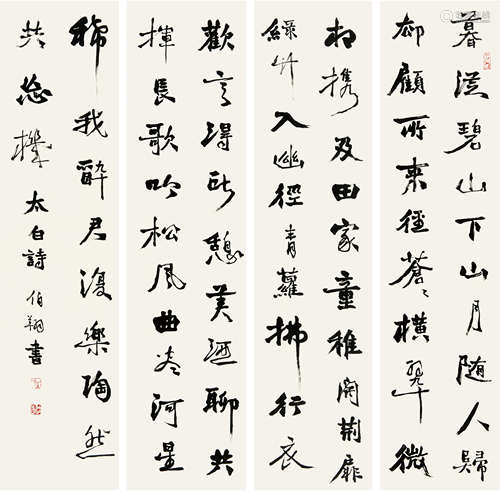 暮從碧山下山月随人歸
却顧所來徑蒼〻橫翠微
相攜及田家童稚開荊扉
綠竹入幽徑青蘿拂行衣
歡言得所憩美酒聊共
揮長歌吟松風曲盡河星
稀我醉君復樂陶然
共忘機 太白詩 伯翔書